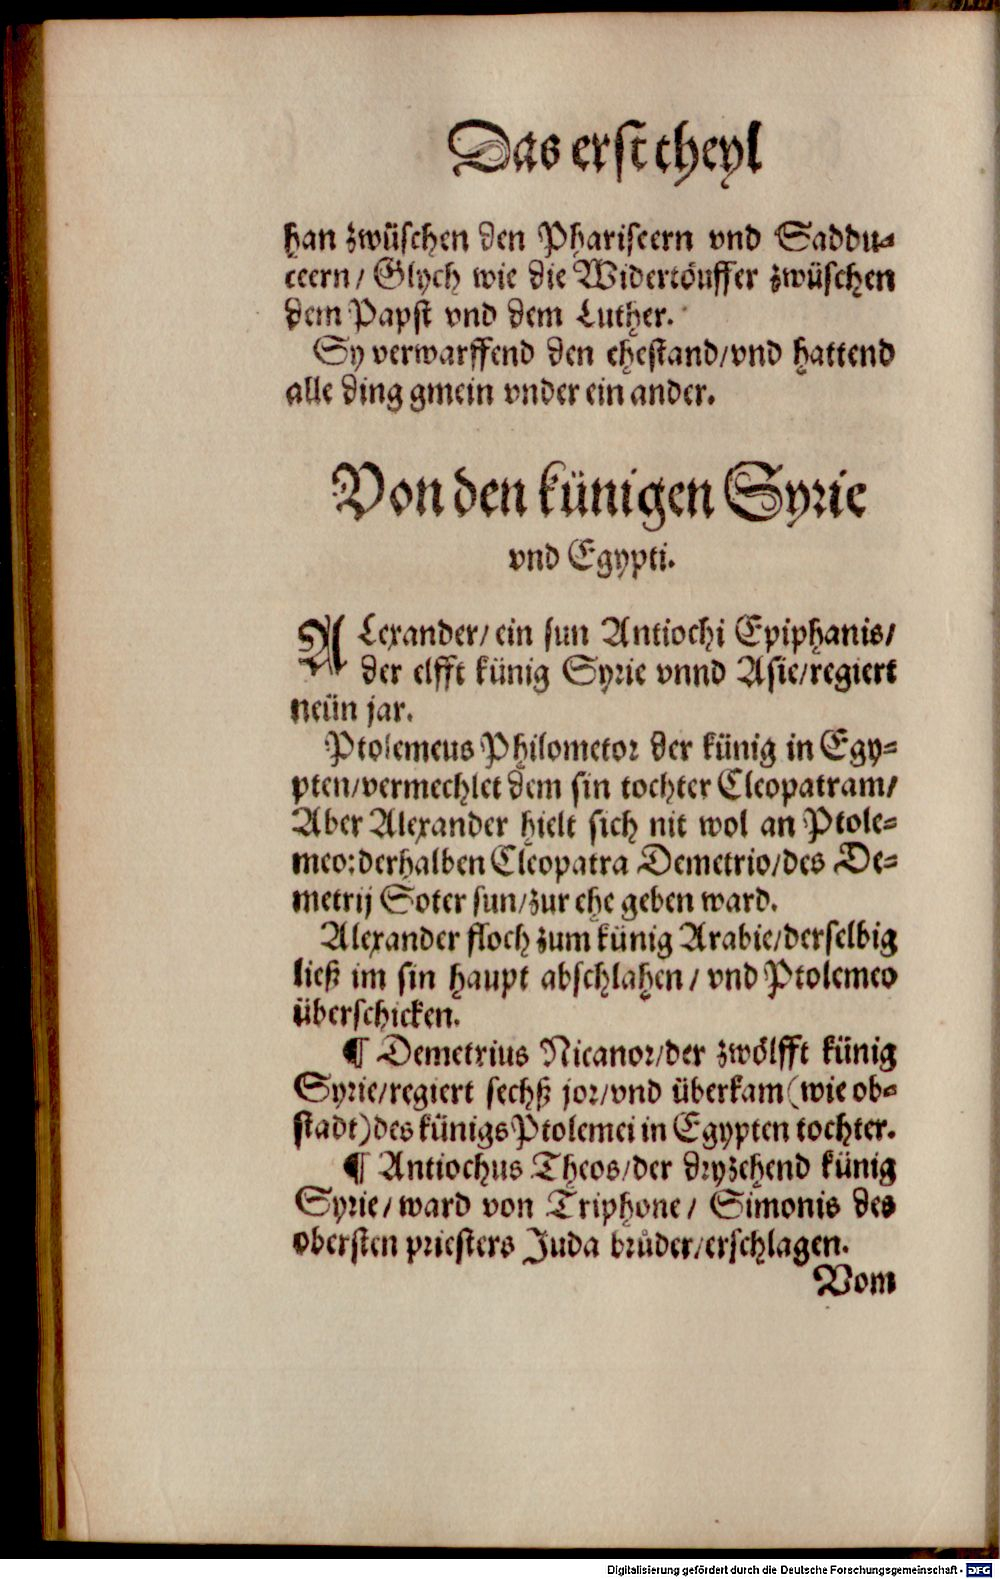 Das erst theyl
han zwüschen den Phariseern vnd Saddu⸗
ceern/ Glych wie die Widertöuffer zwüschen
dem Papst vnd dem Luther.
Sy verwarffend den ehestand/vnd hattend
alle ding gmein vnder ein ander.
Von den künigen Syrie
vnd Egypti.
ALexander/ ein sun Antiochi Epiphanis/
der elfft künig Syrie vnnd Asie/regiert
neün jar.
Ptolemeus Philometor der künig in Egy⸗
pten/vermechlet dem sin tochter Cleopatram/
Aber Alexander hielt sich nit wol an Ptole⸗
meo:derhalben Cleopatra Demetrio/des De⸗
metrij Soter sun/zur ehe geben ward.
Alexander floch zum künig Arabie/derselbig
ließ im sin haupt abschlahen/ vnd Ptolemeo
überschicken.
¶ Demetrius Nicanor/der zwölfft künig
Syrie/regiert sechß jor/vnd überkam (wie ob⸗
stadt) des künigs Ptolemei in Egypten tochter.
¶ Antiochus Theos/der dryzehend künig
Syrie/ ward von Triphone/ Simonis des
obersten priesters Juda brůder/erschlagen.
Vom
Digitalisierung gefördert durch die Deutsche Forschungsgemeinschaft - DFG